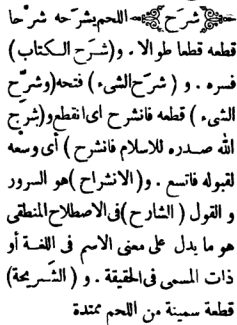 ﴿ شرَح ﴾ اللحم يشرَحه شرْحا
قطعه قطعا طوالا . و(شرَح الكتاب)
فسره . و ( شرَح الشىء ) فتحه (وشرّح
الشىء ) قطعه فانشرح اى انقطع و(شرح
الله صدره للاسلام فانشرح ) أى وسعه
لقبوله فاتسع . و( الانشراح )هو السرور
و القول ( الشارح )فى الاصطلاح المنطقى
هو ما يدل على معنى الاسم فى اللغة أو
ذات المسمى فى الحقيقة . و ( الشَريحة)
قطعة سمينة من اللحم ممتدة